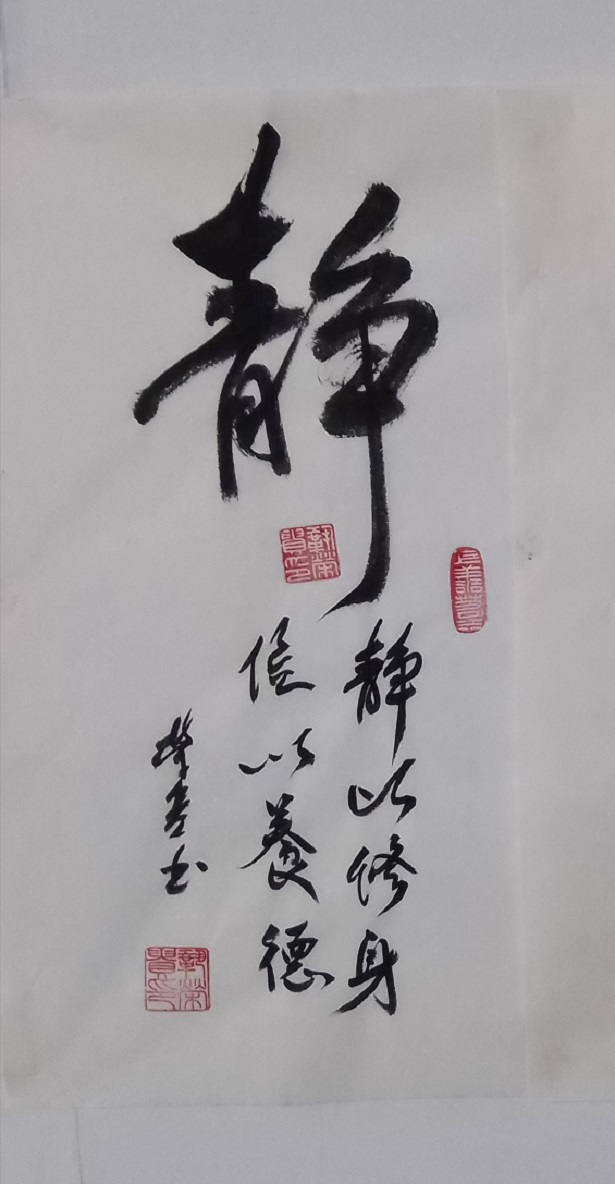 静
静以修身
俭以養德
书